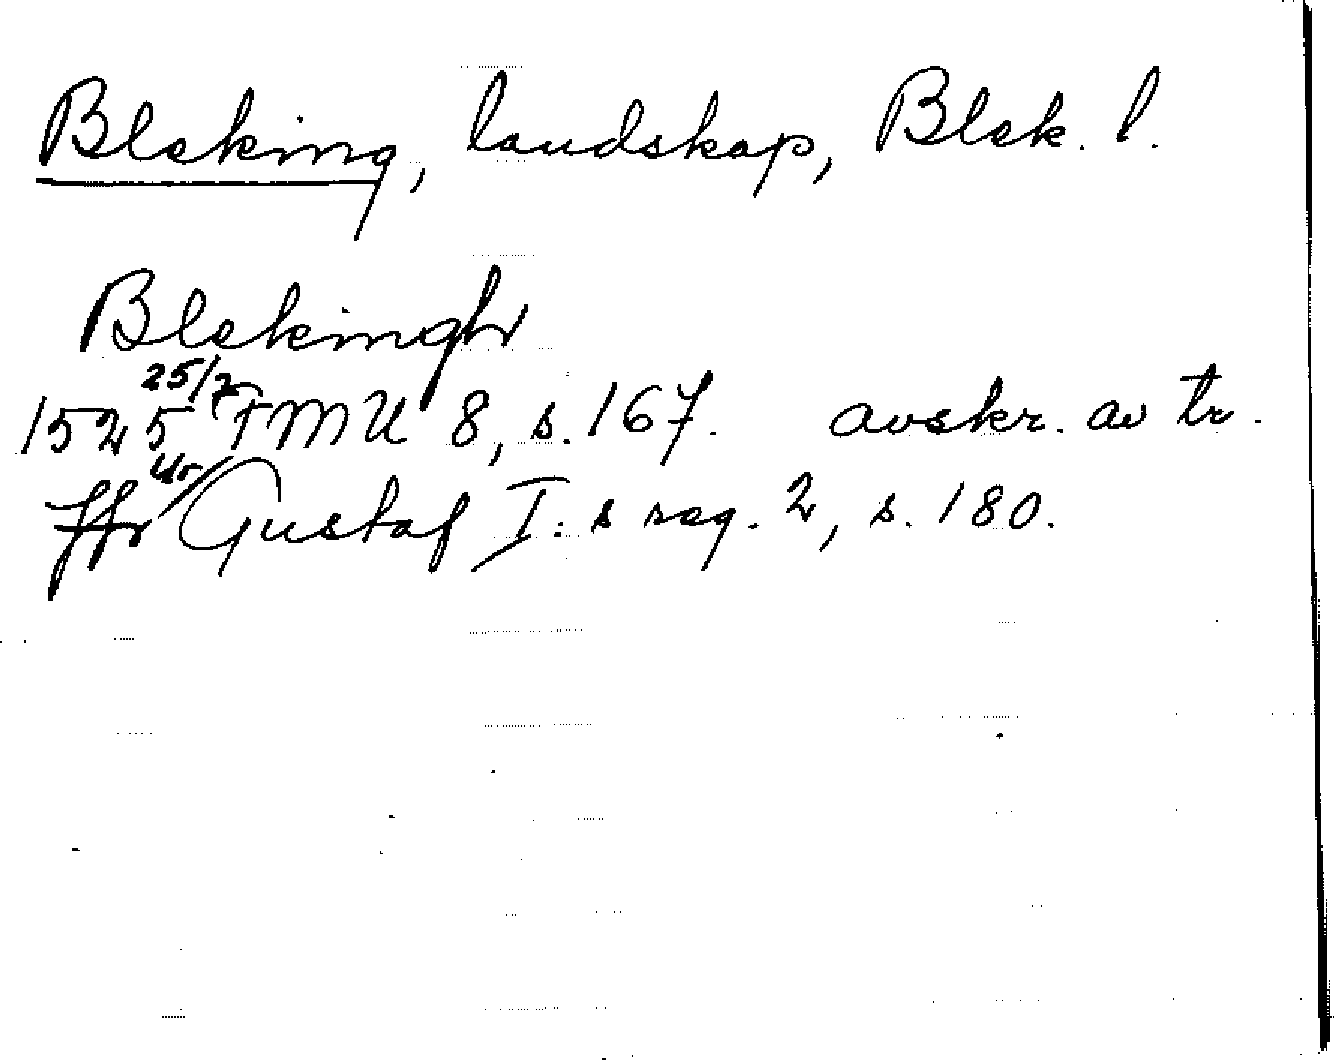 Bleking, landskap, Blek. l.
Blekingh
25/2
1525 FMU 8, s. 167. avskr. av tr.
ur Gustaf I:s reg. 2, s. 180.